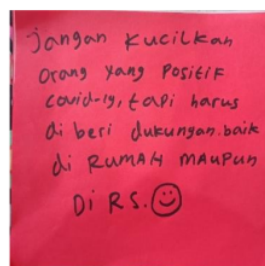 jangan kucilkan
orang yang Positif
covid-19, tapi harus
di beri dukungan.baik
di RUMAH MAUPUN
Di RS.☺